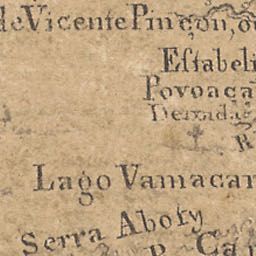 de Vicente Pinçon, o
Eſtabeli
Povoaça
Derrada
R
Lago Vamacar
Serra Aboſy
R Ca